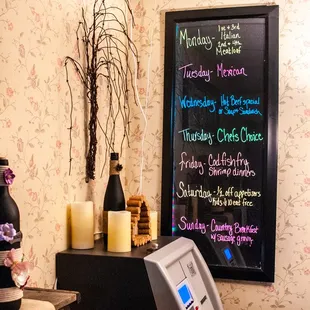 1st & 3rd
Monday - Italian
2nd & 4th
Meatloaf
Tuesday - Mexican
Wednesday - Hot Beef special
or Soup & Sandwich
Thursday - Chefs Choice
Friday - Codfish fry
Shrimp dinners
Saturday - ½ off appetizers
Kids 10 eat free
Sunday - Country Breakfast
w/ Sausage gravy